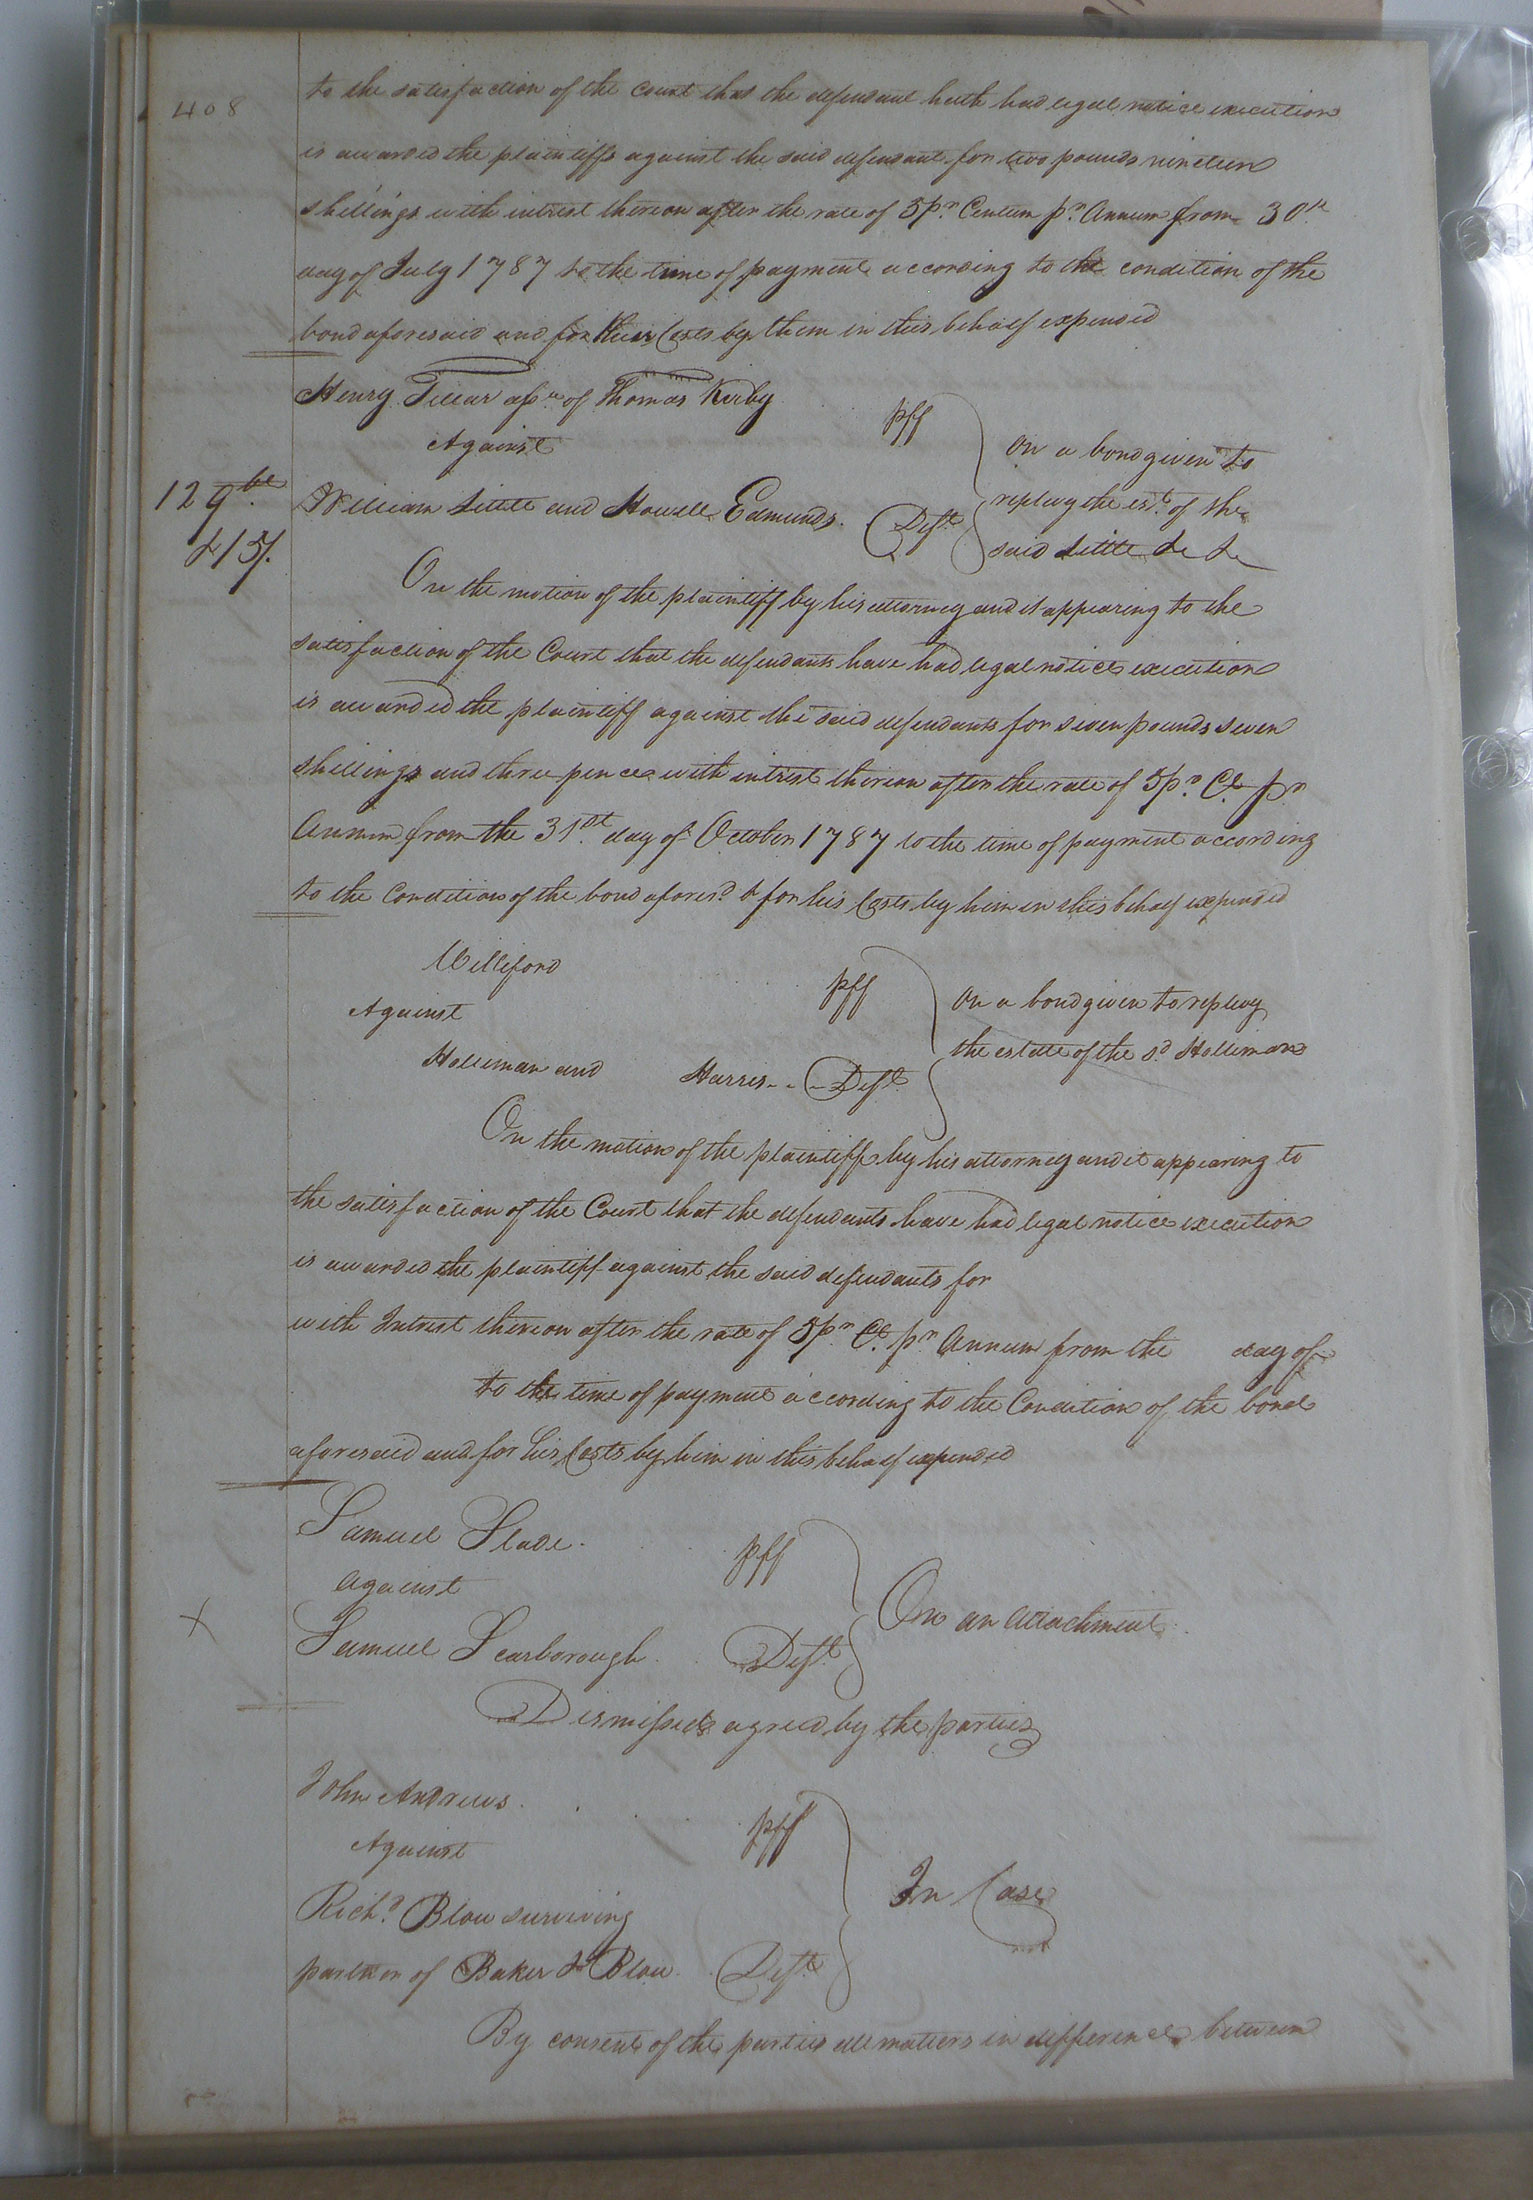 408
to the satisfaction of the Court that the defendant hath had legal notice execution
is awarded the plaintiffs against the said defendant for two pounds nineteen
shillings with intrest thereon after the rate of 5 pr. Centum pr. Annum from 30th
day of July 1787 to the time of payment according to the condition of the
bond aforesaid and for their Costs by them in this behalf expended
Henry Tillar of Thomas Kirby pff
Against
on a bond given to
129
William Little and Howell Edmunds. Deft.
replevy the est. of the
£15/.
said Little &c &c
On the motion of the plaintiff by his attorney and it appearing to the
satisfaction of the Court that the defendants have had legal notice execution
is awarded the plaintiff against the said defendants for seven pounds seven
shillings and three pence with intrest thereon after the rate of 5 pr. Ct. pr
Annum from the 31st day of October 1787 to the time of payment according
to the Condition of the bond aforesd. & for his Costs by him in this behalf expended
Williford pff
Against
on a bond given to replevy
the estate of the sd. Holliman
Holliman and Harris - - - Deft.
On the motion of the plaintiff by his attorney and it appearing to
the satisfaction of the Court that the defendants have had legal notice execution
is awarded the plaintiff against the said defendants for
with Intrest thereon after the rate of 5 pr Ct. pr Annum from the day of
to the time of payment according to the Condition of the bond
aforesaid and for his Costs by him in this behalf expended
Samuel Slade. pff
Against
X
On an attachment
Samuel Scarborough. Deft.
Dismissed agreed by the parties
John Andrews. pff
Against
In Case
Richd. Blow surviving
partner of Baker & Blow. Deft.
By consent of the parties all matters in difference between